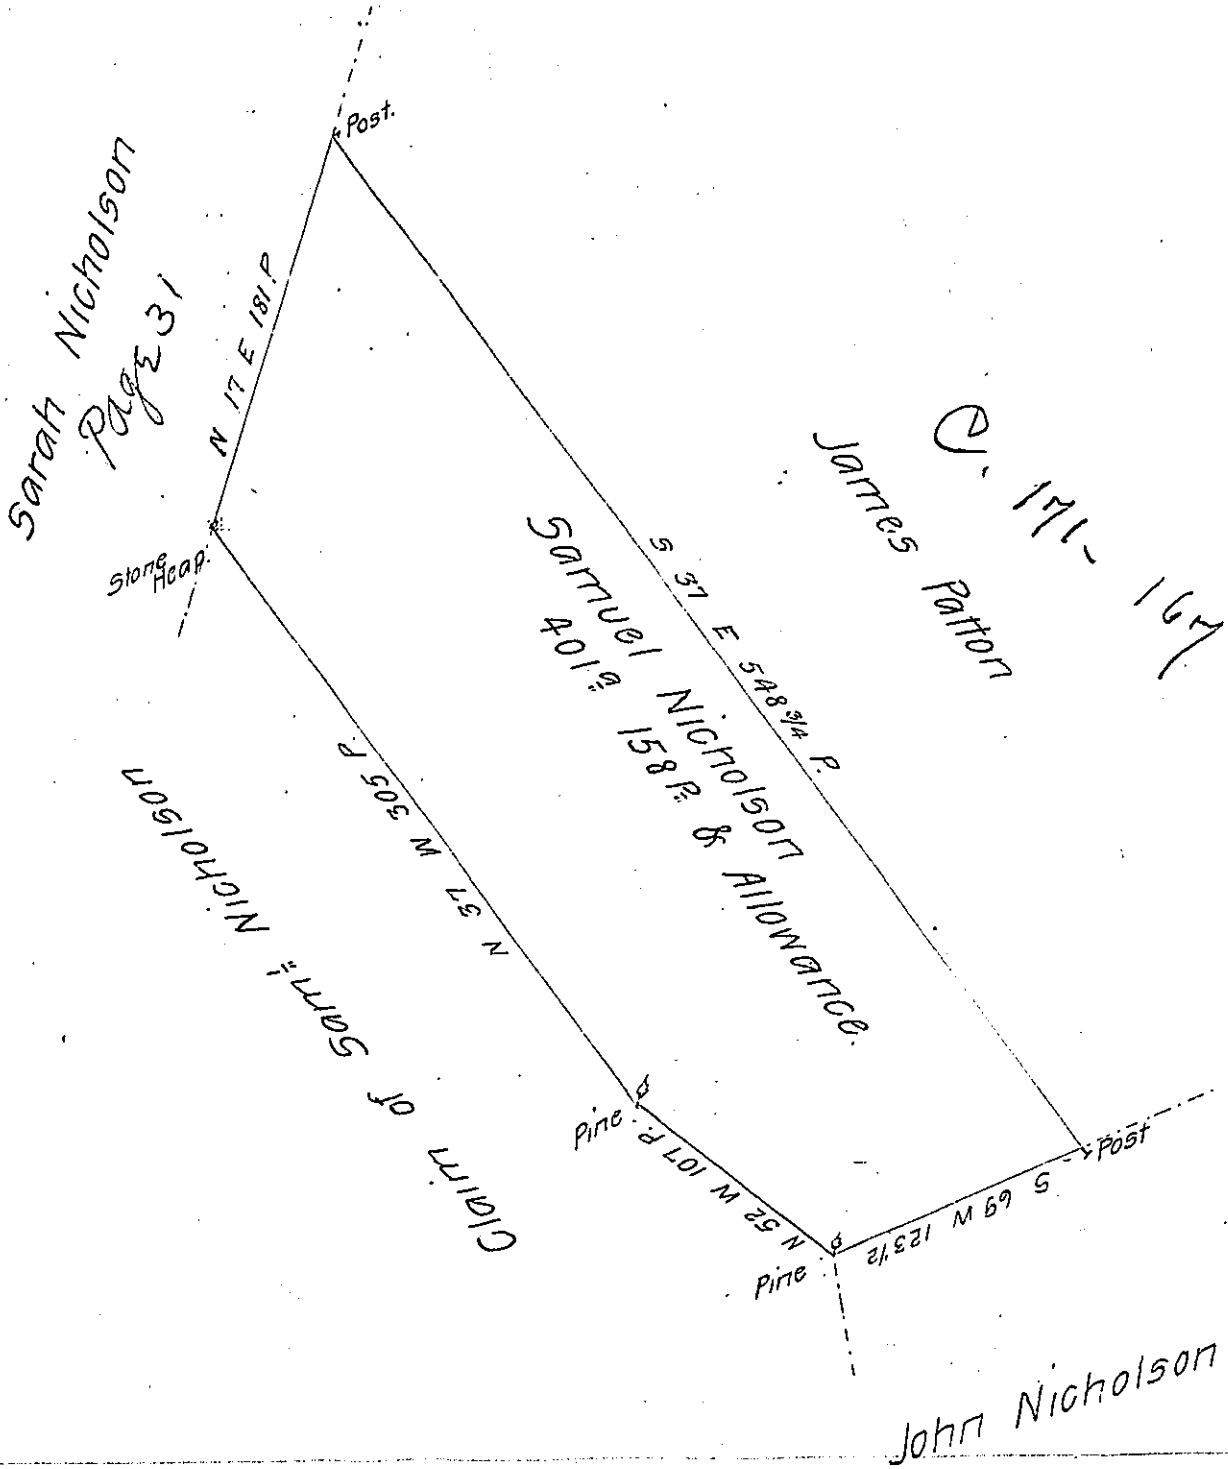 Post.
Sarah Nicholson
Page 31
N 17 E 181 P
Stone
Heap.
C. 171-167
James Patton
S 37 E 548 3/4 P.
Samuel Nicholson
401a 158 Ps & Allowance.
N 37 W 305 P
Claim of Saml Nicholson
Pine
N 52 W 107 P.
Pine
S 69 W 123 1/2
Post
John Nicholson